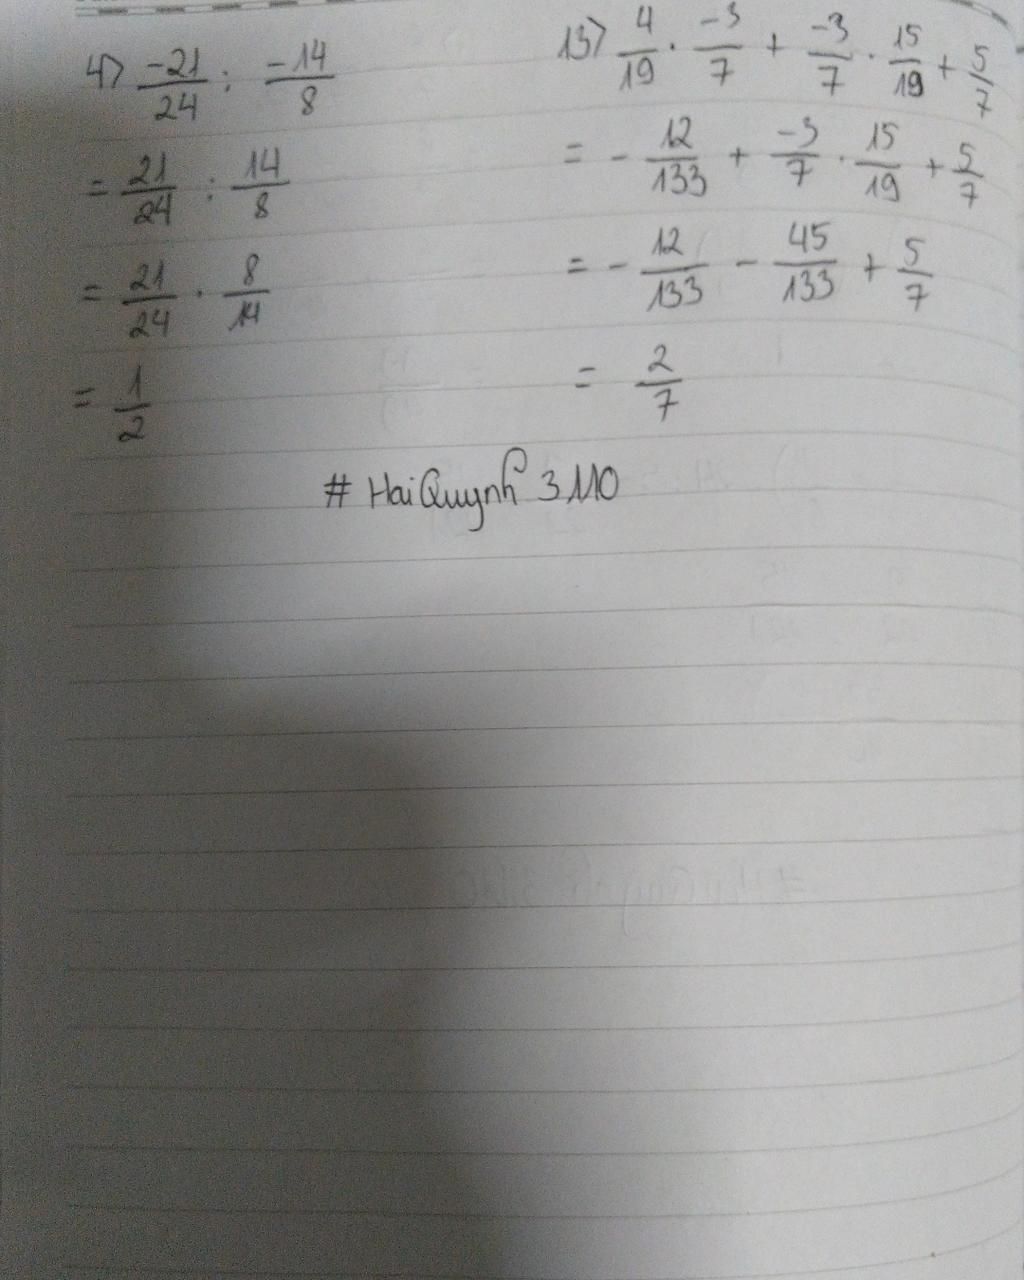 4) -21/24 : -14/8
= 21/24 : 14/8
= 21/24 . 8/14
= 1/2
13) 4/19 . -3/7 + -3/7 . 15/19 + 5/7
= - 12/133 + -3/7 . 15/19 + 5/7
= - 12/133 - 45/133 + 5/7
= 2/7
# HaiQuynh 3110